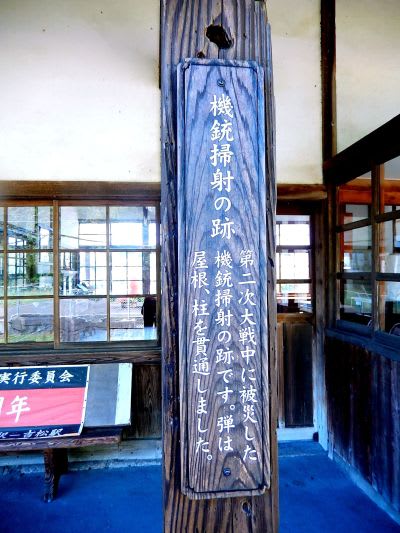 機銃掃射の跡
第二次大戦中に被災した
機銃掃射の跡です。弾は
屋根、柱を貫通しました。
実行委員会
周年
吉松駅